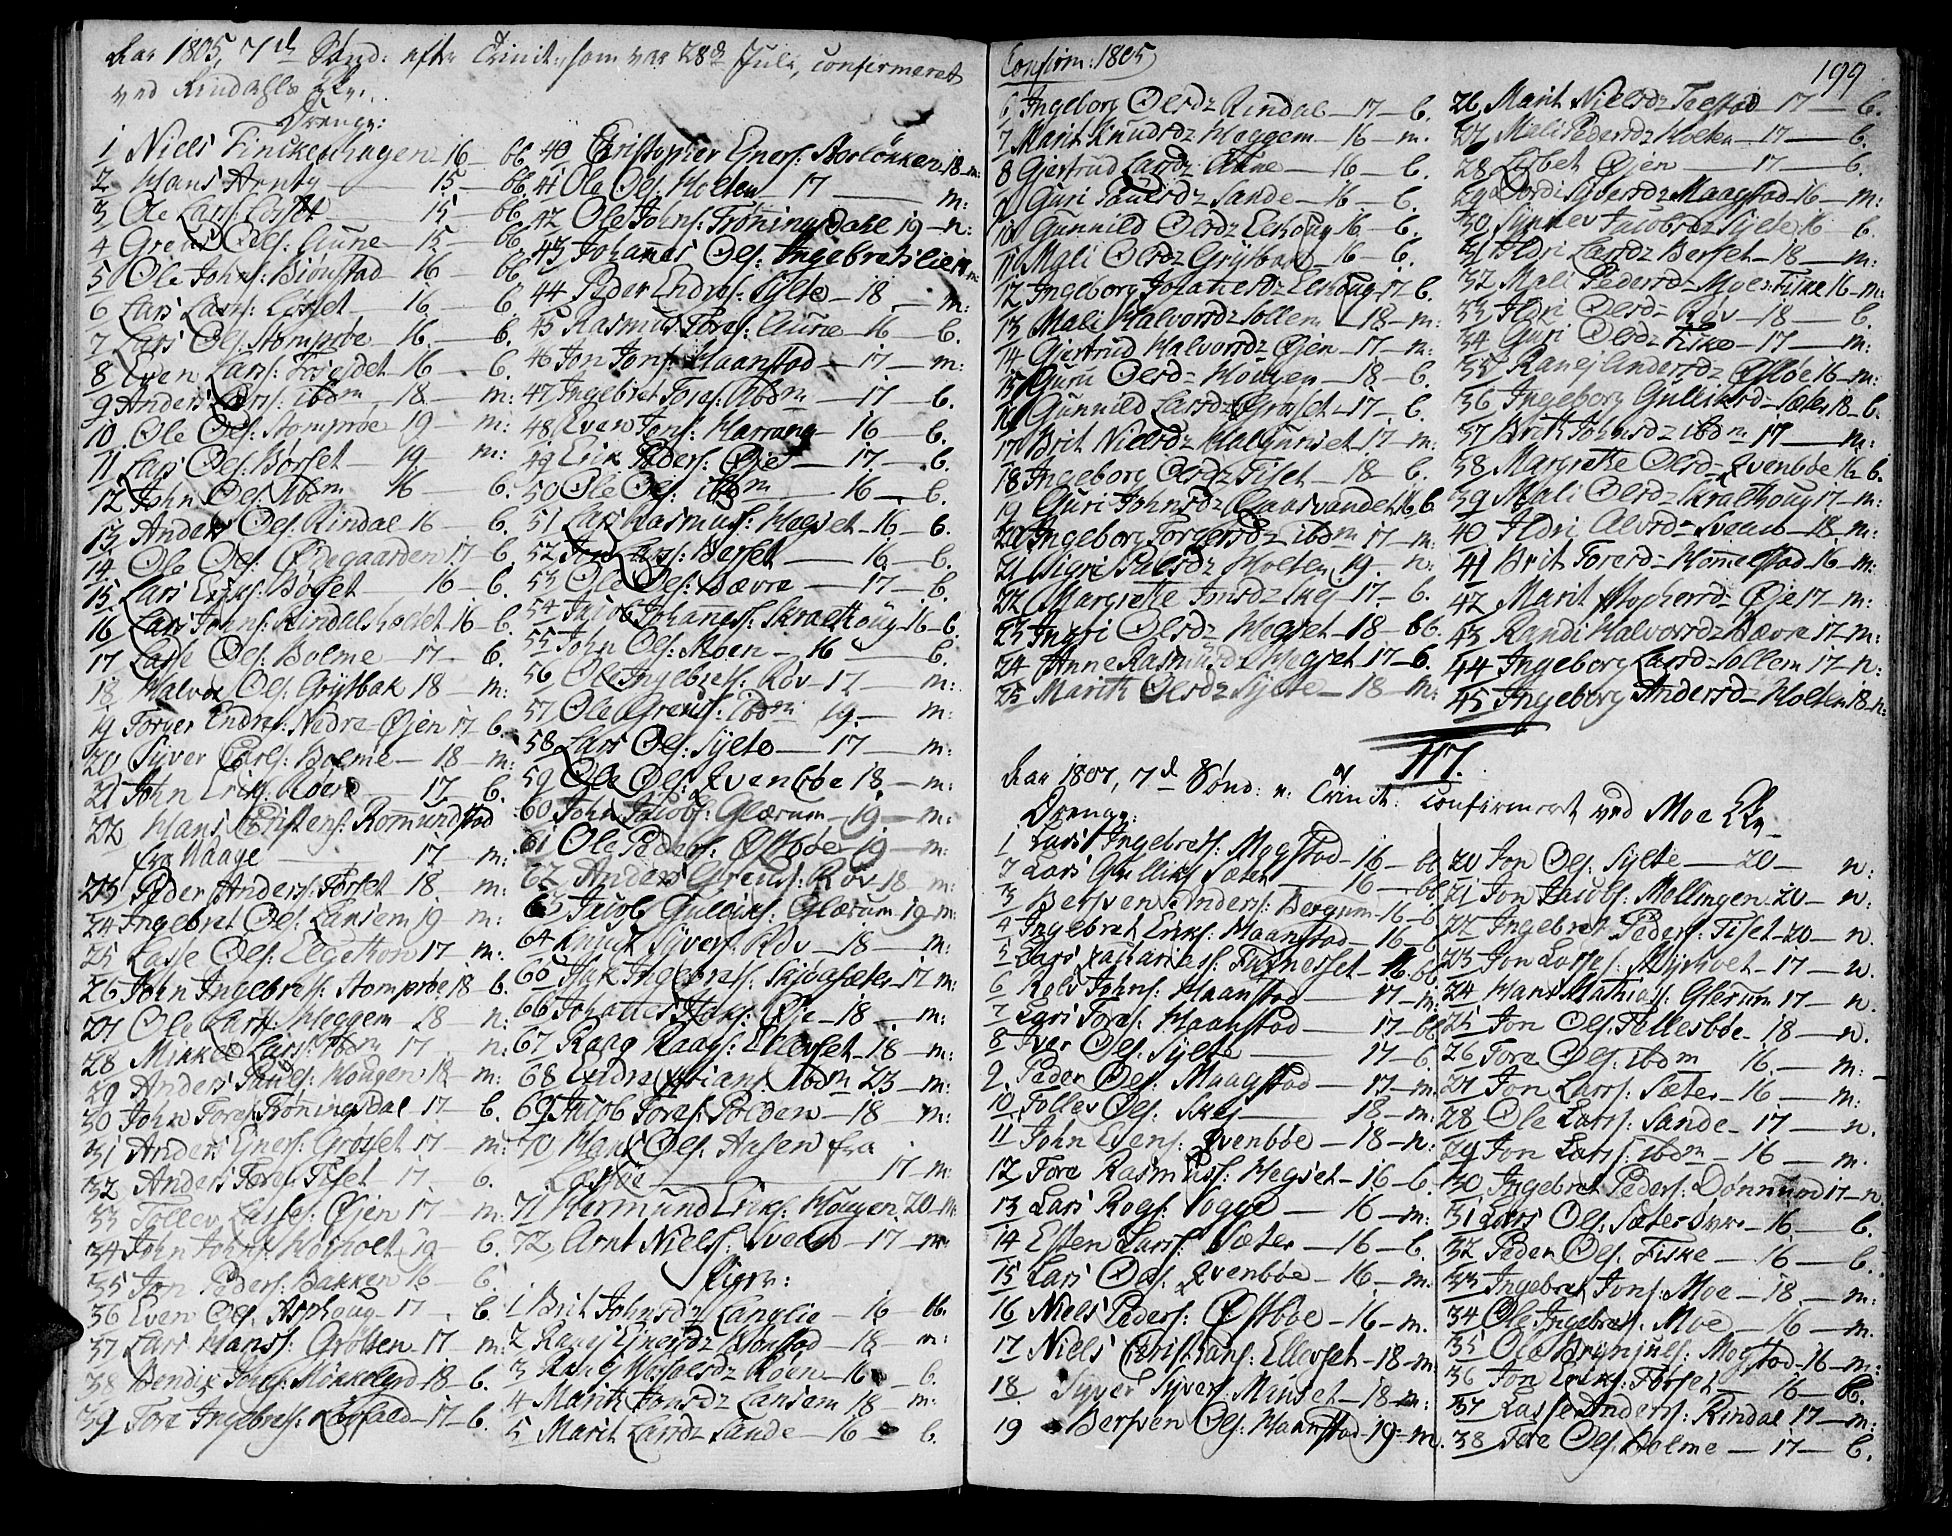 Aar 1805, 7de Sønd: efter Trinit: som var 28de Julii, confirmeret
ved Rindahls
Drenge:
1 Niels Finckenhagen 16 — bb
2 Hans Arntz — 15 — bb.
3 Ole Larss: Losset — 15 — bb.
4 Grens Ols: Aune — 15 — bb.
5 Ole Johns: Biønstad — 16 — bb
6 Lars Larss: Losset — 16 — b.
7 Lars Ols: Stomprøe — 16 — b.
8 Even Larss: Fiseldet — 16 — b.
9 Anders Larss: ibdm — 18 — m:
10 Ole Ols: Stomprøe 19 — m:
11 Lars Ols: Børset — 19 — m:
12 John Ols: ibdm 16 — b.
13 Anders Ols: Rindal 16 — b.
14 Ole Ols: Ødegaarden 17 — b
15 Lars Eriks: Bøget — 16 — b.
16 Lars Johns: Rindalsholet 16 — b.
17 Lasse Ols: Bolme — 17 — b.
18 Halvor Ols: Grytbak 18 — m:
19 Torger Endres: Nedre-Øjen 17 — b.
20 Syver Carls: Bolme — 18 — m:
21 John Eriks: Røen — 17 — b.
22 Hans Christens: Romundstad
fra Haage — 17 — m:
23 Peder Anders: Torset 18 — m:
24 Ingebret Ols: Lansem 19 — m:
25 Lasse Ols: Elgethon 17 — m:
26 John Ingebres: Stomprøe 18 — b.
27 Ole Larss: Heggem 18 — n:
28 Mikkel Larss: ibdm 17 — n:
29 Anders Pauls: Hougen 18 — m:
30 John Fores: Trøningsdal 17 — b.
31 Anders Eners: Grøset 17 — m:
32 Anders Fores: Tiset — 17 — b.
33 Tollev Lasses: Øjen 17 — m:
34 John Johns: Hojholt 19 — b.
35 Jon Peders: Bakken 16 — b.
36 Even Ols: Asphoug — 17 — b.
37 Lars Hanss: Grotten 17 — m:
38 Bendix Johs: Mikkelgrd 18 — b.
39 Tore Ingebres: Løfald — 17 — b.
40 Christopher Eners: Storløkken 18 — m:
41 Ole Ols: Holten 17 — m:
42 Ole Johns: Trøningsdahl 19 — n:
43 Johanes Ols: Ingebretslien — m.
44 Peder Endres: Sylte — 18 — m:
45 Rasmus Tores: Aune — 16 — b.
46 Jon Jons: Haanstad — 17 — m:
47 Ingebret Tores: ibdm — 17 — b.
48 Even Jons: Harrang — 16 — b.
49 Erik Peders: Øje — 17 — b.
50 Ole Ols: ibdm — 16 — b.
51 Lars Rasmuss: Helset — 16 — b.
52 Larss: Berset — 16 — b.
53 Ole Ols: Bævre — 17 — b.
54 Jacob Johaness: Kralthoug 16 — b.
55 John Ols: Moen — 16 — b.
56 Ole Ingebres: Røv — 17 — m:
57 Ole Grens: ibdm 19 — m:
58 Lars Ols: Sylte — 17 — m:
59 Ole Ols: Qvenbøe 18 — m:
60 John Jacobs: Glærum — 19 — m:
61 Ole Peders: Østbøe 19 — m:
62 Anders Grens: Røv 18 — m:
63 Jacob Gulliks: Glærum 19 — m:
64 Knud Syvers: Røv — 18 — m:
65 Isak Ingebres: Skjølsæter — 17 m:
66 Johannes Isaks: Øje — 18 — m:
67 Raag Raags: Ellevset — 18 — m:
68 Endre Christians: ibdm 23 — m:
69 Jacob Tores: Polden — 18 — m:
70 Hans Ols: Aasen fra
— 17 — m:
71 Hermund Eriks: Hougen. 20 — m:
72. Arnt Niels: Sveen — 17 — m:
Piger:
1 Brit Johnsdz Langlie — 16 — bb.
2 Ranej Enersdz Bonstad — 18 — m:
3 Røen — 16 — b.
4 Marit Jonsdz Lansem 18 — m:
5 Marit Larsdz Sande — 16 — b.
Confirm: 1805
199
6 Ingeborg Olsdz Rindal — 17 — b.
7 Marit Knudsdz Heggem — 16 — m.
8 Gjertrud Larsdz Aune — 16 — b.
9 Guri Paulsdz Sande — 16 — b.
10 Gunnild Olsdz Elshoug 16 — b.
11 Mali Olsdz Grytbak — 16 — b.
12 Ingeborg Johanesdz Elshoug 17 b.
13 Mali Halvorsdz Sollem — 18 — m:
14 Gjertrud Halvorsdz Øjen — 17 — m:
15 Guru Olsd= Hougen — 18 — b.
16 Gunnild Larsdz Grøset — 17 — b.
17 Brit Nielsdz Halgunset 17 — m:
18 Ingeborg Olsdz Tiset — 18 — b.
19 Guri Johnsdz Claasvandet 16 b.
20 Ingeborg Torgersdz ibdm 17 — m:
21 Sigri Palsdz Holten 19 — n:
22 Margrette Jonsdz Skej — 17 — b.
23 Ingri Olsdz Megset — 18 — bb.
24 Anne Rasmusdz Megset 17 — b.
25 Marith Olsdz Sylte — 18 — m:
26 Marit Nielsdz Teestad — 17 — b.
27 Mali Pedersdz Holten — 17 — b.
28 Lisbet Øjen — 17 — b.
29 Sordi Syversdz Maagstad 16 — m:
30 Synnev Jacobsdz Sylte 16 — b.
31 Ildri Larsdz Berset — 18 — m:
32 Mali Pedersdz Moe Fiske 16 — m:
33 Ildri Olsdz Røv — 18 — b.
34 Guri Olsdz Fiske — 17 — m:
35 Ranej Andersdz Østbøe 16 — m:
36 Ingeborg Gulliksd= Sæter 18 — b.
37 Brith Johnsdz ibdm 17 — m:
38 Margrette Olsd= Qvenbøe 16 b.
39 Mali Olsdz Kralthoug 17 — m:
40 Ildri Alvsd= Sveen — 18 — m:
41 Brit Toresd= Homelstad 16 — m:
42 Marit Stophersd= Øje 17 — m:
43 Randi Halvorsdz Bævre 17 — m:
44 Ingeborg Larsd= Sollem 17 — n:
45 Ingeborg Andersd= Holten 18 — n:
117.
Aar 1807, 7de Sønd: e: Trinit: confirmeret ved Moe Kke
Drenge:
1 Lars Ingebress: Mogstad — 16 — bb
2 Lars Gulliks: Sæter — 16 — bb
3 Bersven Anders: Bergum — 16 — b
4 Ingebret Eriks: Haanstad — 16 — b
5 Lars Zachariess: — 16 bb
6 Rolv Johns: Haanstad — 17 — m:
7 Lars Tores: Haanstad — 17 — bb
8 Iver Ols: Sylte — 17 — b
9 Peder Ols: Maagstad — 17 — m.
10 Tollev Ols: Skej — 18 — m:
11 John Esens: Qvenbøe — 18 — n:
12 Tore Rasmuss: Megset — 16 — b.
13 Lars Rogs: Vogge — 16 — m:
14 Esten Larss: Sæter — 16 — b.
15 Lars Ols: Qvenbøe — 16 — m:
16 Niels Peders: Østbøe — 16 — m.
17 Niels Christians: Ellevset — 18 — m
18 Syver Syvers: Mauset — 18 — m:
19 Bersven Ols: Haanstad — 19 — m.
20 Jon Ols: Sylte — 20 — n:
21 Jon Jacobs: Mellingen 20 — n.
22 Ingebret Peders: Tiset — 20 — n.
23 Jon Larss: — 17 — n.
24 Hans Mathias: Glerum 17 — n.
25 Jon Ols: Tellesbøe — 18 — n.
26 Tore Ols: ibdm 16. — m:
27 Jon Larss: Sæter — 16 — m:
28 Ole Larss: Sande — 17 — n.
29 Jon Larss: ibdm — 16 — m.
30 Ingebret Peders: Dønnum 17 — n
31 Lars Ols: Sæter — 16 — b.
32 Peder Ols: Fiske — 16 — b.
33 Ingebret Jons: Moe — 18 — m:
34 Ole Ingebres: Moe — 16 — m:
35 Ole Brynjuls: Mogstad — 16 — m:
36 Jon Eriks: Torset — 16 — b.
37 Lasse Anders: Rindal 17 — m:
38 Tore Ols: Holme — 17 — b.